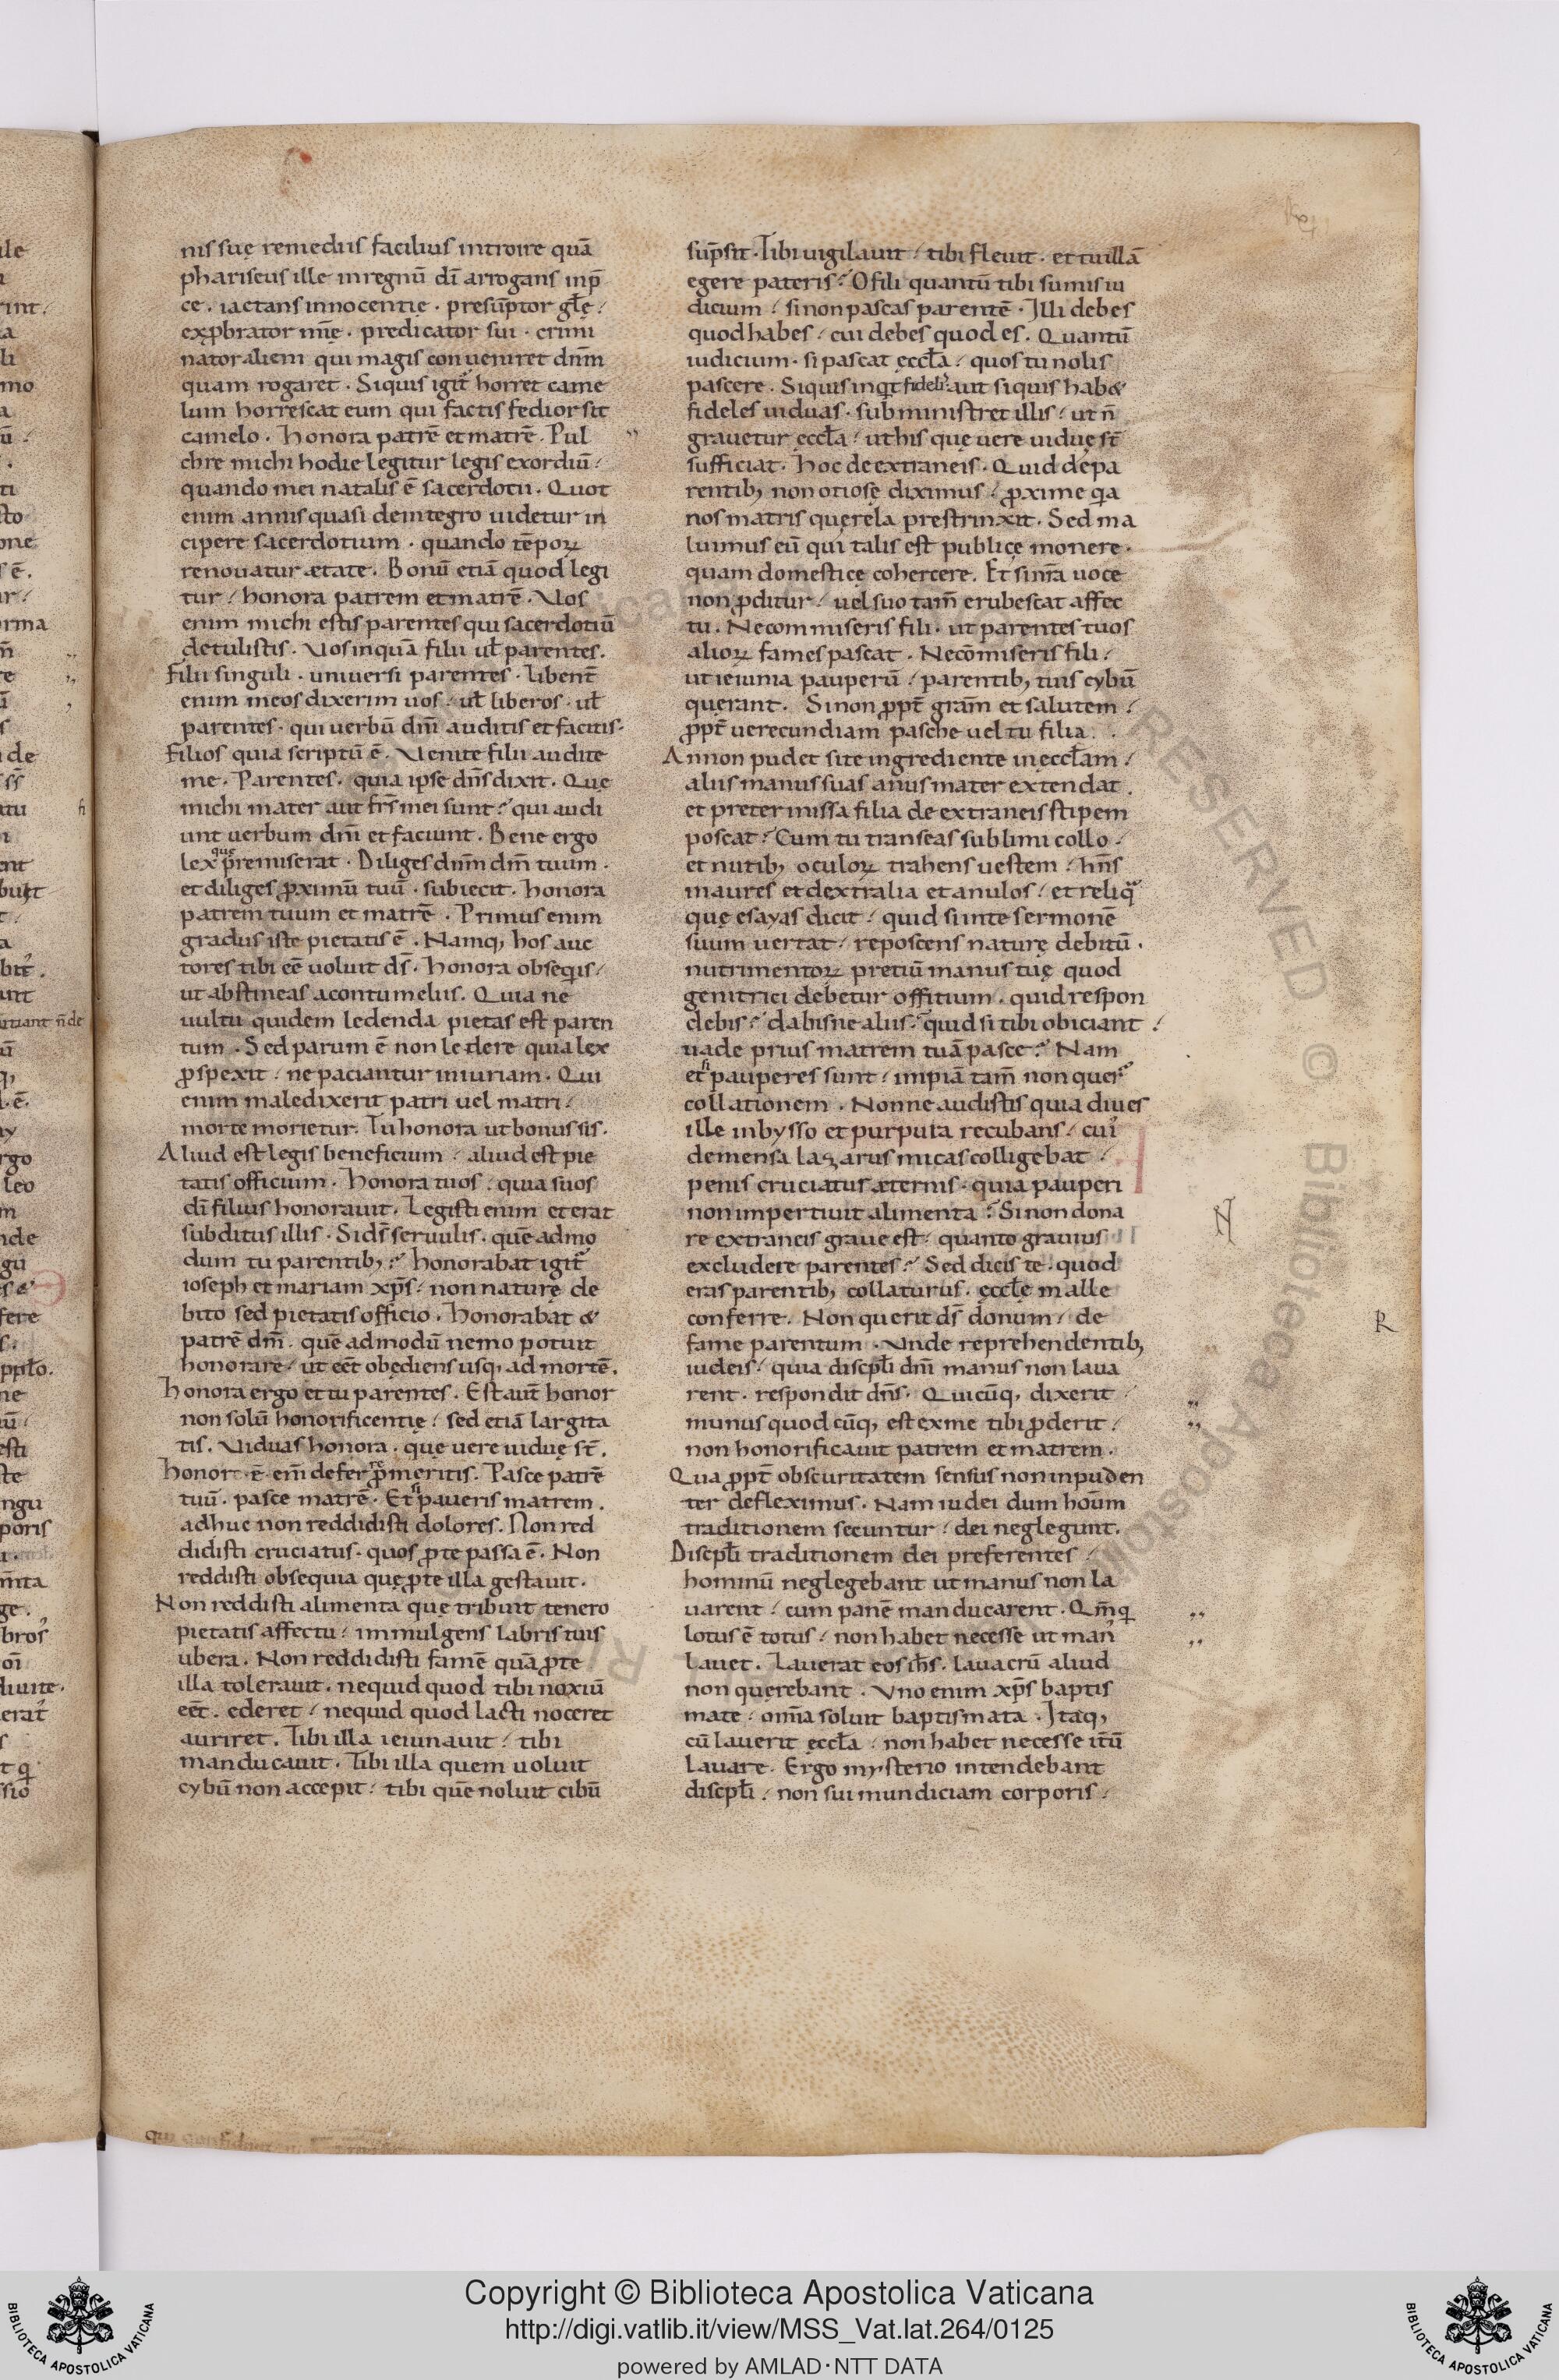 nis suę remediis facilius introire quā
phariseus ille in regnū dī arrogans inp̄
ce . iactans innocentie . presūptor głę /
exp̱brator mīę . predicator sui . crimi
nator alieni qui magis conueniret dnm̄
quam rogaret . Siquis igit̄ horret came
lum horrescat eum qui factis fedior sit
camelo . honora patrē et matrē . Pul
chre michi hodie legitur legis exordiū /
quando mei natalis ē sacerdotii . Quot
enim annis quasi de integro uidetur in
cipere sacerdotium . quando tēpoꝝ
renouatur ætate . Bonū etiā quod legi
tur / honora patrem et matrē . Uos
enim michi estis parentes qui sacerdotiū
detulistis . Uos inquā filii uł parentes .
Filii singuli . uniuersi parentes . libent̄
enim meos dixerim uos / uł liberos . uł
parentes . qui uerbū dnī auditis et facitis .
Filios quia scriptū ē . Uenite filii audite
me . Parentes . quia ipse dn̄s dixit . Quę
michi mater aut fr̄s mei sunt ? qui audi
unt uerbum dnī et faciunt . Bene ergo
lex que p̄remiserat . Diliges dnm̄ dm̄ tuum .
et diliges ꝓximū tuū . subiecit . honora
patrem tuum et matrē . Primus enim
gradus iste pietatis ē . Namq, hos auc
tores tibi eē uoluit ds̄ . honora obseqis /
ut abstineas a contumeliis . Quia ne
uultu quidem ledenda pietas est paren
tum . Sed parum ē non ledere quia lex
ꝓspexit / ne paciantur iniuriam . Qui
enim maledixerit patri uel matri /
morte morietur . Tu honora ut bonus sis .
Aliud est legis beneficium / aliud est pie
tatis officium . honora tuos / quia suos
dī filius honorauit . Legisti enim et erat
subditus illis . Si ds̄ seruulis . quē admo
dum tu parentib; ? honorabat igit̄
ioseph et mariam xp̄s / non naturę de
bito sed pietatis officio . honorabat &
patrē dm̄ . quē admodū nemo potuit
honorare / ut eēt obędiens usq, ad mortē .
honora ergo et tu parentes . Est aut̄ honor
non solū honorificentię / sed etiā largita
tis . Uiduas honora . quę uere uiduę st̄ .
honor . ē . em̄ defer p̱ meritis . Pasce patrē
tuū . pasce matrē . Et si paueris matrem .
adhuc non reddidisti dolores . Non red
didisti cruciatus . quos ꝓte passa ē . Non
reddisti obsequia quę ꝓte illa gestauit .
Non reddisti alimenta quę tribuit tenero
pietatis affectu / immulgens labris tuis
ubera . Non reddidisti famē quā ꝓte
illa tolerauit . nequid quod tibi noxiū
eēt . ederet / nequid quod lacti noceret
auriret . Tibi illa ieiunauit / tibi
manducauit . Tibi illa quem uoluit
cybū non accepit / tibi quē noluit cibū
sūpsit . Tibi uigilauit / tibi fleuit . et tu illā
egere pateris ? O fili quantū tibi sumis iu
dicium / si non pascas parentē . Illi debes
quod habes / cui debes quod es . Quantū
iudicium . si pascat ęccła / quos tu nolis
pascere . Siquis inqt fideł aut siquis hab&
fideles uiduas . subministret illis / ut n̄
grauetur ęccła / ut his quę uere uiduę st̄
sufficiat . hoc de extraneis . Quid de pa
rentib; non otiosę diximus / ꝓxime qa
nos matris querela prestrinxit . Sed ma
luimus eū qui talis est publice monere .
quam domestice cohercere . Et si nr̄a uoce
non ꝓditur / uel suo tam̄ erubescat affec
tu . Ne commiseris fili . ut parentes tuos
alioꝝ fames pascat . Ne cōmiseris fili /
ut ieiunia pauperū / parentib; tuis cybū
querant . Si non ꝓpt̄ gram̄ et salutem /
ꝓpt̄ uerecundiam pasche uel tu filia .
Annon pudet si te ingrediente in eccłam /
aliis manus suas anus mater extendat .
et pretermissa filia de extraneis stipem
poscat ? Cum tu transeas sublimi collo /
et nutib; oculoꝝ trahens uestem / hn̄s
maures et dextralia et anulos / et reliq̄
quę esayas dicit / quid si in te sermonē
suum uertat / reposcens naturę debitū .
nutrimentoꝝ pretiū manus tuę quod
genitrici debetur offitium . quid respon
debis ? dabisne aliis / quid si tibi obiciant /
uade prius matrem tuā pasce ? Nam
et si pauperes sunt / impiā tam̄ non quer̄
collationem . Nonne audistis quia diues
ille in bysso et purpura recubans / cui'
de mensa lazarus micas colligebat /
penis cruciatus æternis . quia pauperi
non impertiuit alimenta ? Si non dona
re extraneis graue est / quanto grauius
excludere parentes ? Sed dicis te . quod
eras parentib; collaturus . eccłę malle
conferre . Non querit ds̄ donum / de
fame parentum . Unde reprehendentib;
iudeis / quia discpłi dnī manus non laua
rent . respondit dn̄s . Quicūq, dixerit /
munus quodcūq, est ex me tibi ꝓderit /
non honorificauit patrem et matrem .
Qua ꝓpt̄ obscuritatem sensus non inpuden
ter defleximus . Nam iudei dum houm̄
traditionem secuntur / dei neglegunt .
Discpłi traditionem dei preferentes /
hominū neglegebant ut manus non la
uarent / cum panē manducarent . Qm̄ q
lotus ē totus / non habet necesse ut man'
lauet . Lauerat eos ih̄s . lauacrū aliud
non quęrebant . Uno enim xp̄s baptis
mate / omīa soluit baptismata . Itaq,
cū lauerit ęccła / non habet necesse itū
lauare . Ergo mysterio intendebant
discpłi / non sui mundiciam corporis /
N
R
RESERVED © Biblioteca Apostolica
Copyright © Biblioteca Apostolica Vaticana
http://digi.vatlib.it/view/MSS_Vat.lat.264/0125
powered by AMLAD·NTT DATA
BIBLIOTECA APOSTOLICA VATICANA
BIBLIOTECA APOSTOLICA VATICANA